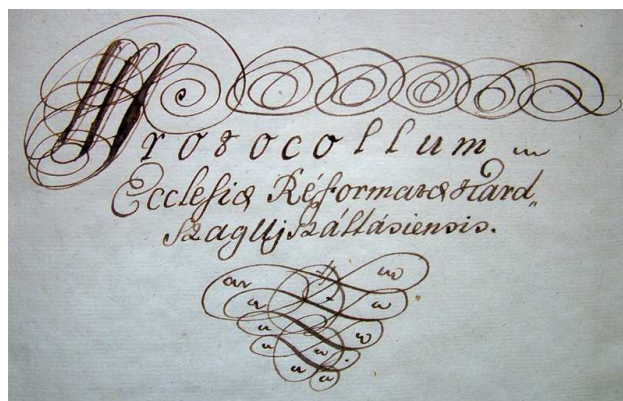 Protocollum
Ecclesiæ Réformatæ Kard„
szagUjszállásiensis.